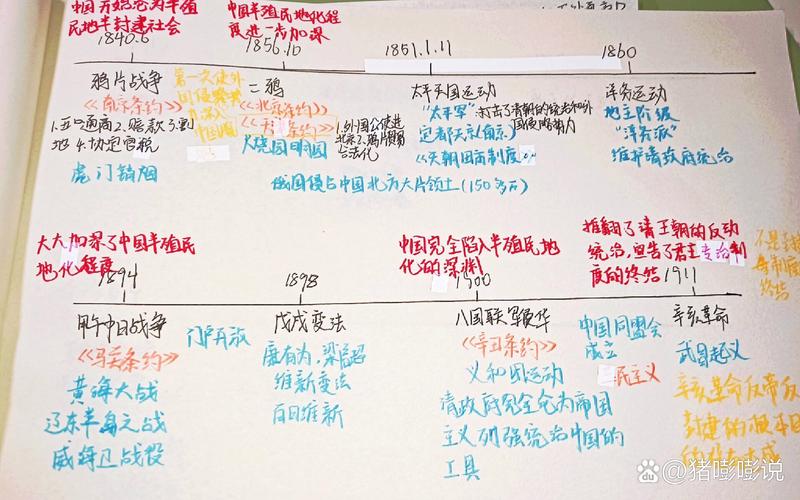 中国开始沦为半殖
民地半封建社会
中国半殖民地化程
度进一步加深
1840.6
1856.10
1851.1.11
1860
鸦片战争
《南京条约》
1.五口通商 2.赔款 3.割
地 4.协定关税
虎门销烟
第一次使外
国侵略者
深入
中国
二鸦
《北京条约》
《天津条约》
火烧圆明园
1.外国公使进
北京 2.鸦片贸易
合法化
俄国侵占中国北方大片领土(150多万)
太平天国运动
"太平军"打击了清朝的统治和外
国侵略势力
定都天京(南京)
《天朝田亩制度》
洋务运动
地主阶级
"洋务派"
维护清政府统治
大大加深了中国半殖民
地化程度
中国完全陷入半殖民地
化的深渊
推翻了清王朝的反动
统治,宣告了君主专治制
度的终结
不是封建
终结
1894
1898
1900
1911
甲午中日战争
《马关条约》
黄海大战
辽东半岛之战
威海卫战役
门户开放
戊戌变法
康有为,梁启超
维新变法
百日维新
八国联军侵华
《辛丑条约》
义和团运动
清政府完全沦为帝国
主义列强统治中国的
工具
中国同盟会
成立
民主义
辛亥革命
武昌起义
辛亥革命反帝反
封建的
百度 @猪嘭嘭说